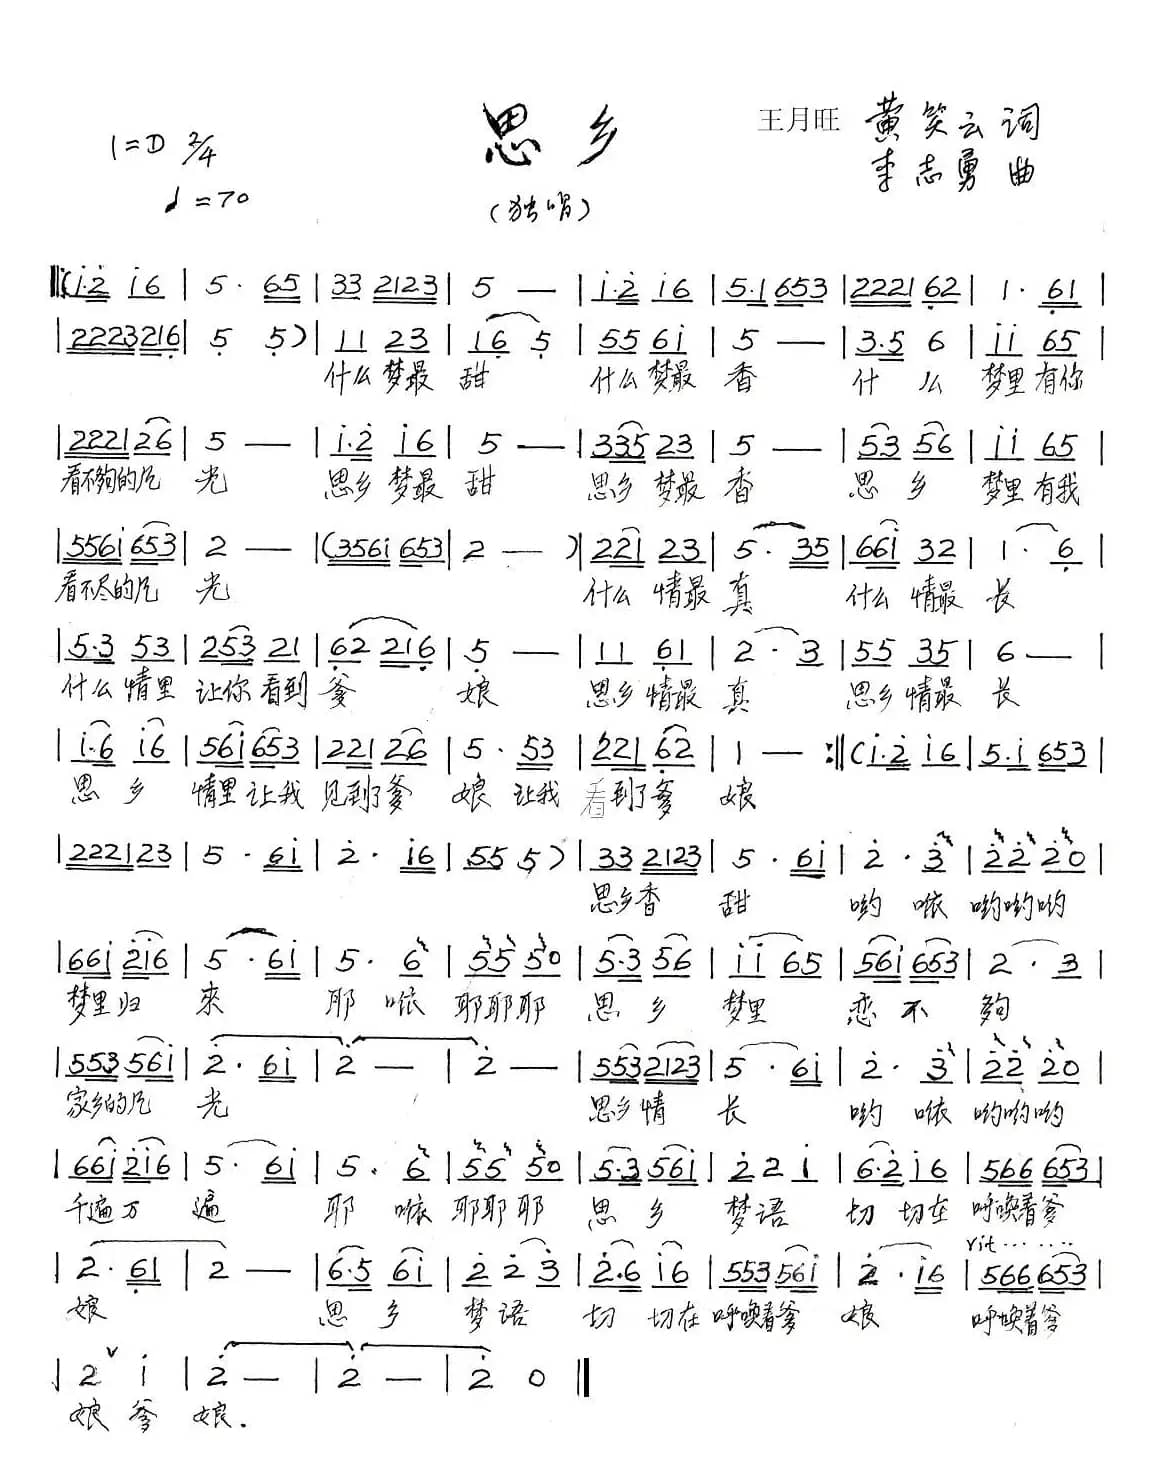 思乡
王月旺 黄笑云词
1=D 2/4
李志勇 曲
♩=70
(独唱)
‖:(i·2 i6 | 5· 65 | 33 2123 | 5 — | i·2 i6 | 5·1 653 | 2221 62 | 1· 61 |
| 2223216 | 5 5) | 11 23 | 16 5 | 55 6i | 5 — | 3·5 6 | ii 65 |
什么梦最 甜 什么梦最 香 什 么 梦里有你
| 2221 26 | 5 — | i·2 i6 | 5 — | 335 23 | 5 — | 53 56 | ii 65 |
看不够的 光 思乡梦最 甜 思乡梦最 香 思 乡 梦里有我
| 556i 653 | 2 — | (356i 653 | 2 — ) | 221 23 | 5· 35 | 66i 32 | 1· 6 |
看不尽的 光 什么情最 真 什么情最 长
| 5·3 53 | 253 21 | 62 216 | 5 — | 11 61 | 2· 3 | 55 35 | 6 — |
什么情里 让你看到 爹 娘 思乡情最 真 思乡情最 长
| i·6 i6 | 56i 653 | 221 26 | 5· 53 | 221 62 | 1 — :‖ (i·2 i6 | 5·i 653 |
思 乡 情里让我 见到了爹 娘 让我 看到了爹 娘
| 222123 | 5· 6i | 2· i6 | 55 5) | 33 2123 | 5· 6i | 2· 3 | 22 20 |
思乡香 甜 哟 咴 哟哟哟
| 66i 2i6 | 5· 6i | 5· 6 | 55 50 | 5·3 56 | ii 65 | 56i 653 | 2· 3 |
梦里归 来 耶 咴 耶耶耶 思 乡 梦里 恋 不 夠
| 553 56i | 2· 6i | 2 — | 2 — | 553 2123 | 5· 6i | 2· 3 | 22 20 |
家乡的 光 思乡情 长 哟 咴 哟哟哟
| 66i 2i6 | 5· 6i | 5· 6 | 55 50 | 5·3 56i | 2 2 i | 6·2 i6 | 566 653 |
千遍万 遍 耶 咴 耶耶耶 思 乡 梦语 切 切在 呼唤着爹
rit……
| 2· 61 | 2 — | 6·5 6i | 2 2 3 | 2·6 i6 | 553 56i | 2· i6 | 566 653 |
娘 思 乡 梦语 切 切在 呼唤着爹 娘 呼唤着爹
| 2 ∨ i | 2 — | 2 — | 2 0 ‖
娘 爹 娘.